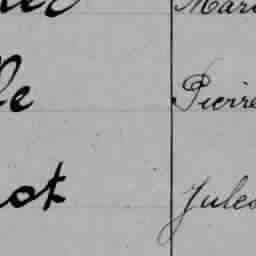 Mari
le Pierre
ot Jules